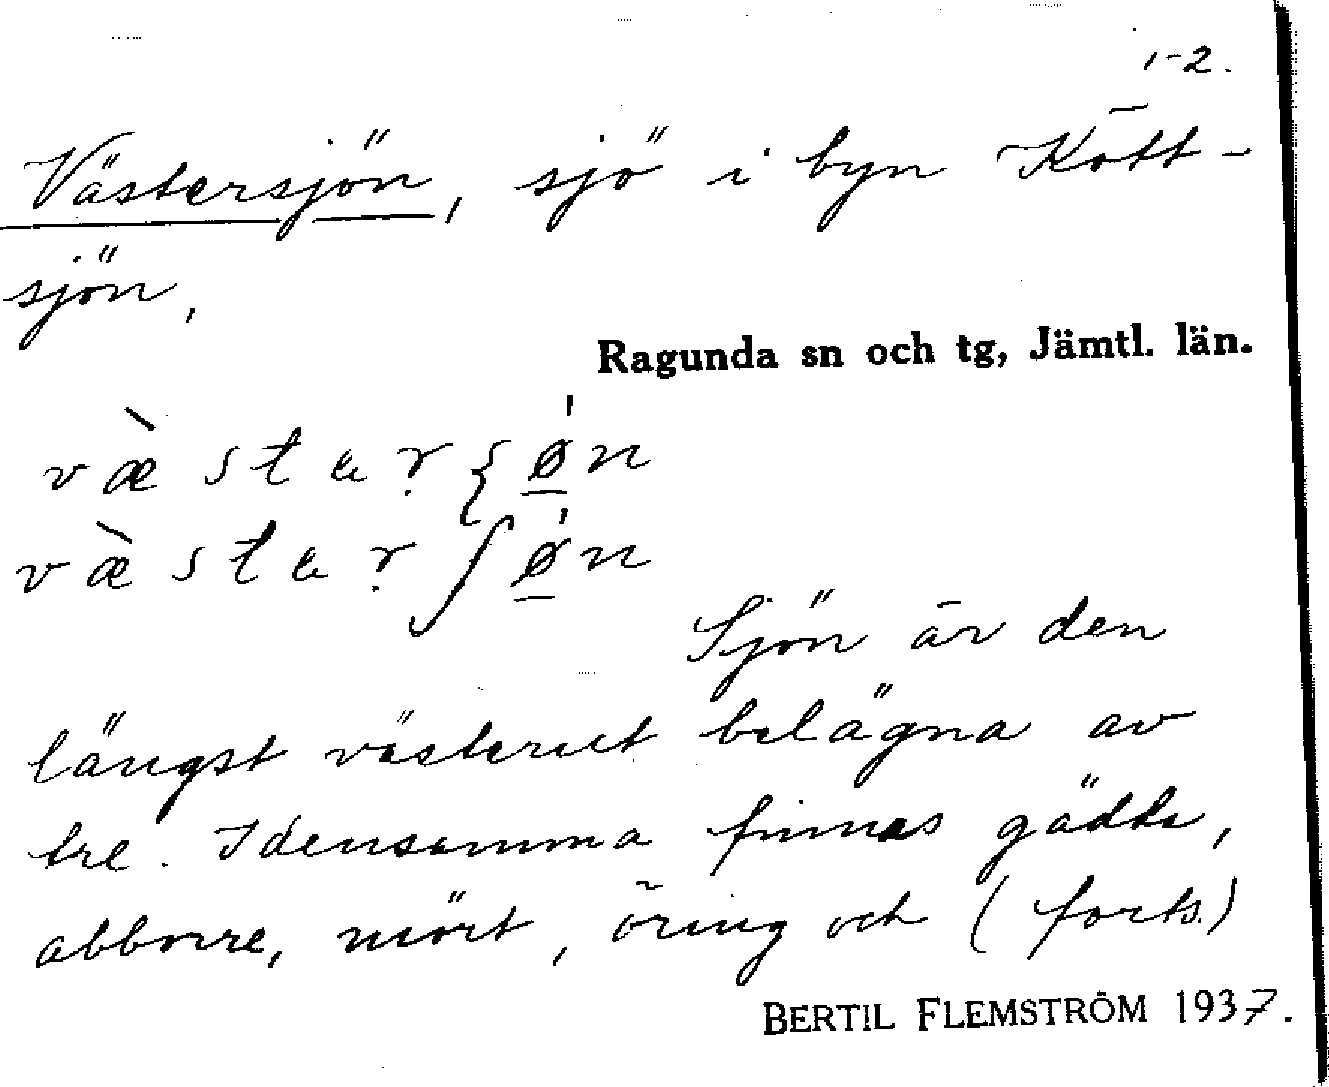 1-2.
Västersjön, sjö i byn Kött-
sjön,
Ragunda sn och tg, Jämtl. län.
Sjön är den
längst västerut belägna av
tre. Idensamma finnes gädda,
abborre, mört, öring och (forts.)
BERTIL FLEMSTRÖM 1937.